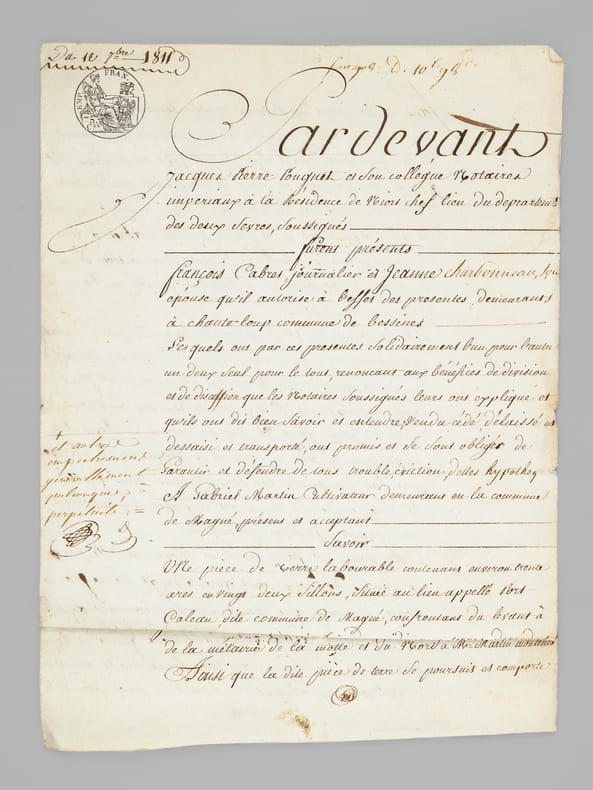 Du 12 7bre 1811
EMP. FRAN.
Pardevant
Jacques Pierre Pouguet et Son collégue Notaires
imperiaux à la Résidence de Niort chef lieu du departemt
des deux Sevres, Soussignés
furent présents
françois Cabres, journalier et Jeanne charbonneau, son
épouse qu'il autorise à l'effet des presentes, demeurants
à chante-loup commune de bessines
Lesquels ont par ces presentes Solidairement l'un pour l'autre
un deux Seul pour le tout, renoncant aux bénéfices de division
et de que les Notaires Soussignés leurs ont expliqué et
qu'ils ont dit bien Savoir et entendre, Vendu cédé délaissé et
dessaisi et transporté, ont promis et Se Sont obliger de
Garantir et défendre de tous trouble, éviction, dettes hypotheq
et autre
empechement
généralement
quelconques, à
perpétuité =
A Gabriel Martin Cultivateur demeurant en la commune
de Magné, présent et acceptant
Savoir
Une pièce de terre labourable contenant environ trente
ares en vingt deux Sillons, Située au lieu appellé Port
Caleau, dite commune de Magné, confrontant du levant à
de la métairie de la motte et du Nord à Mr Martin
Ainsi que la dite pièce de terre Se poursuit et comporte